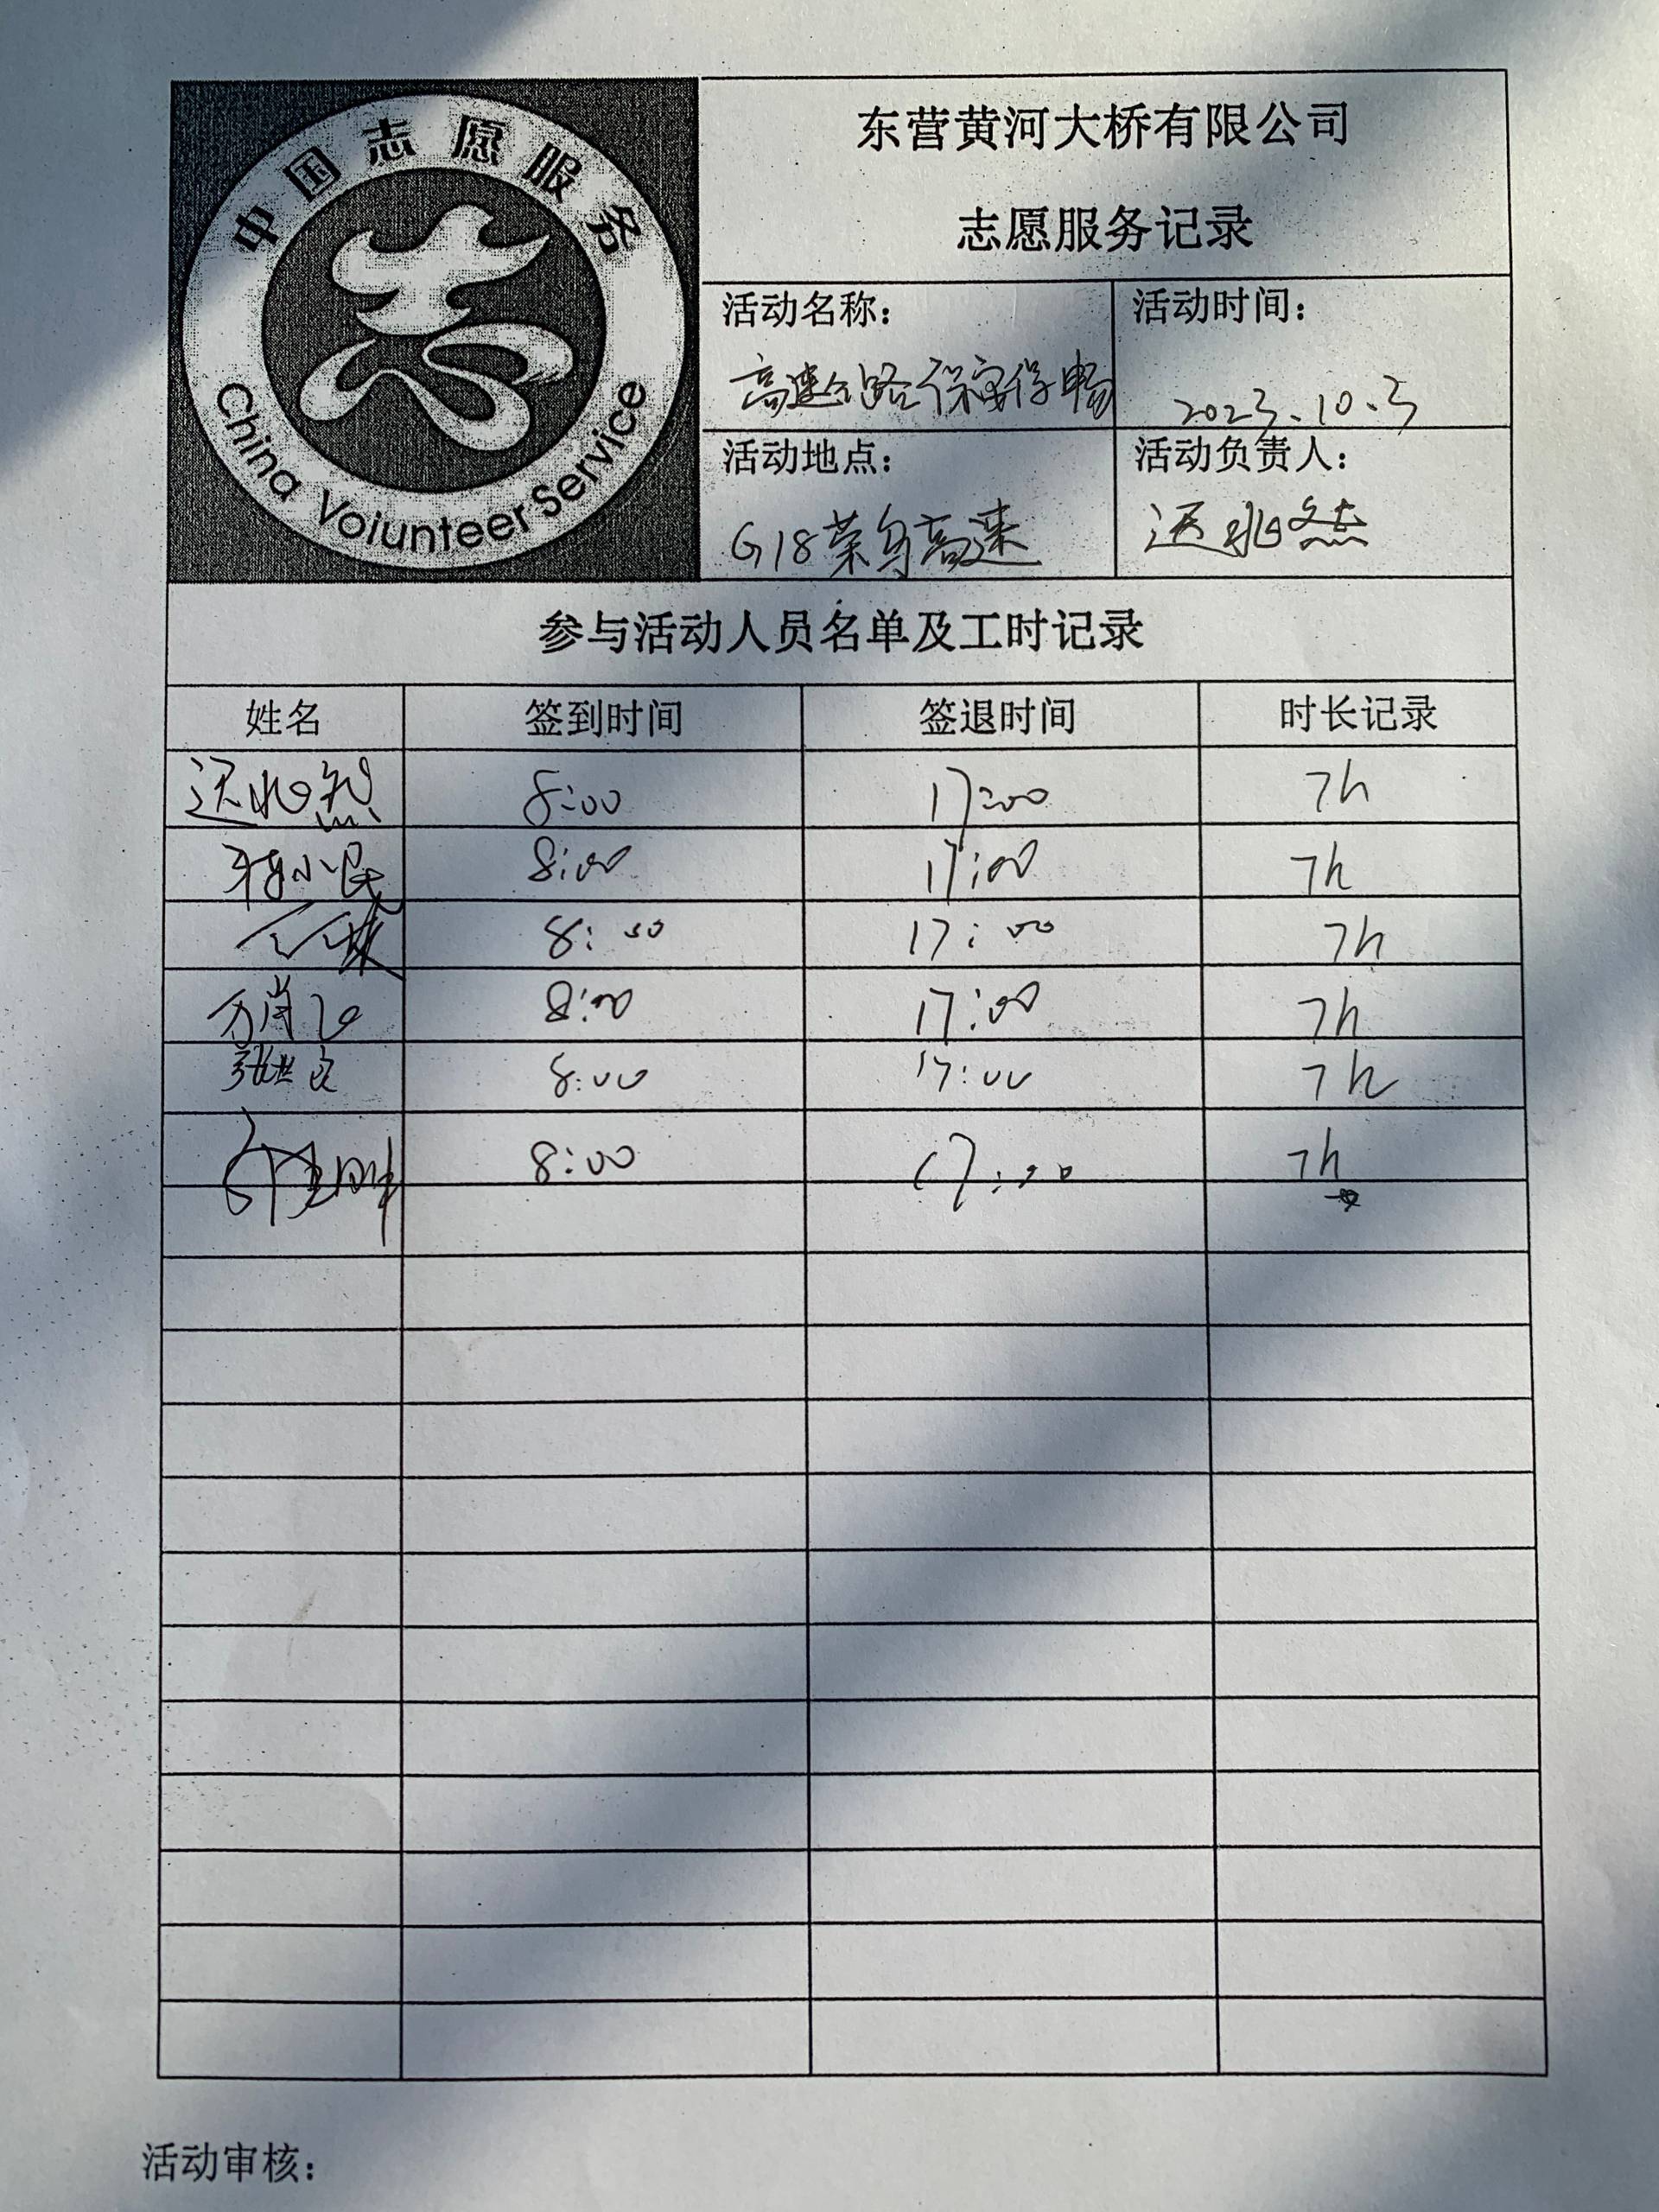 中国志愿服务
China Voiunteer Service
东营黄河大桥有限公司
志愿服务记录
活动名称：
高速公路保安保畅
活动时间：
2023.10.3
活动地点：
G18荣乌高速
活动负责人：
参与活动人员名单及工时记录
姓名 签到时间 签退时间 时长记录
8:00 17:00 7h
8:00 17:00 7h
8:00 17:00 7h
8:00 17:00 7h
张世文 8:00 17:00 7h
8:00 17:00 7h
活动审核：